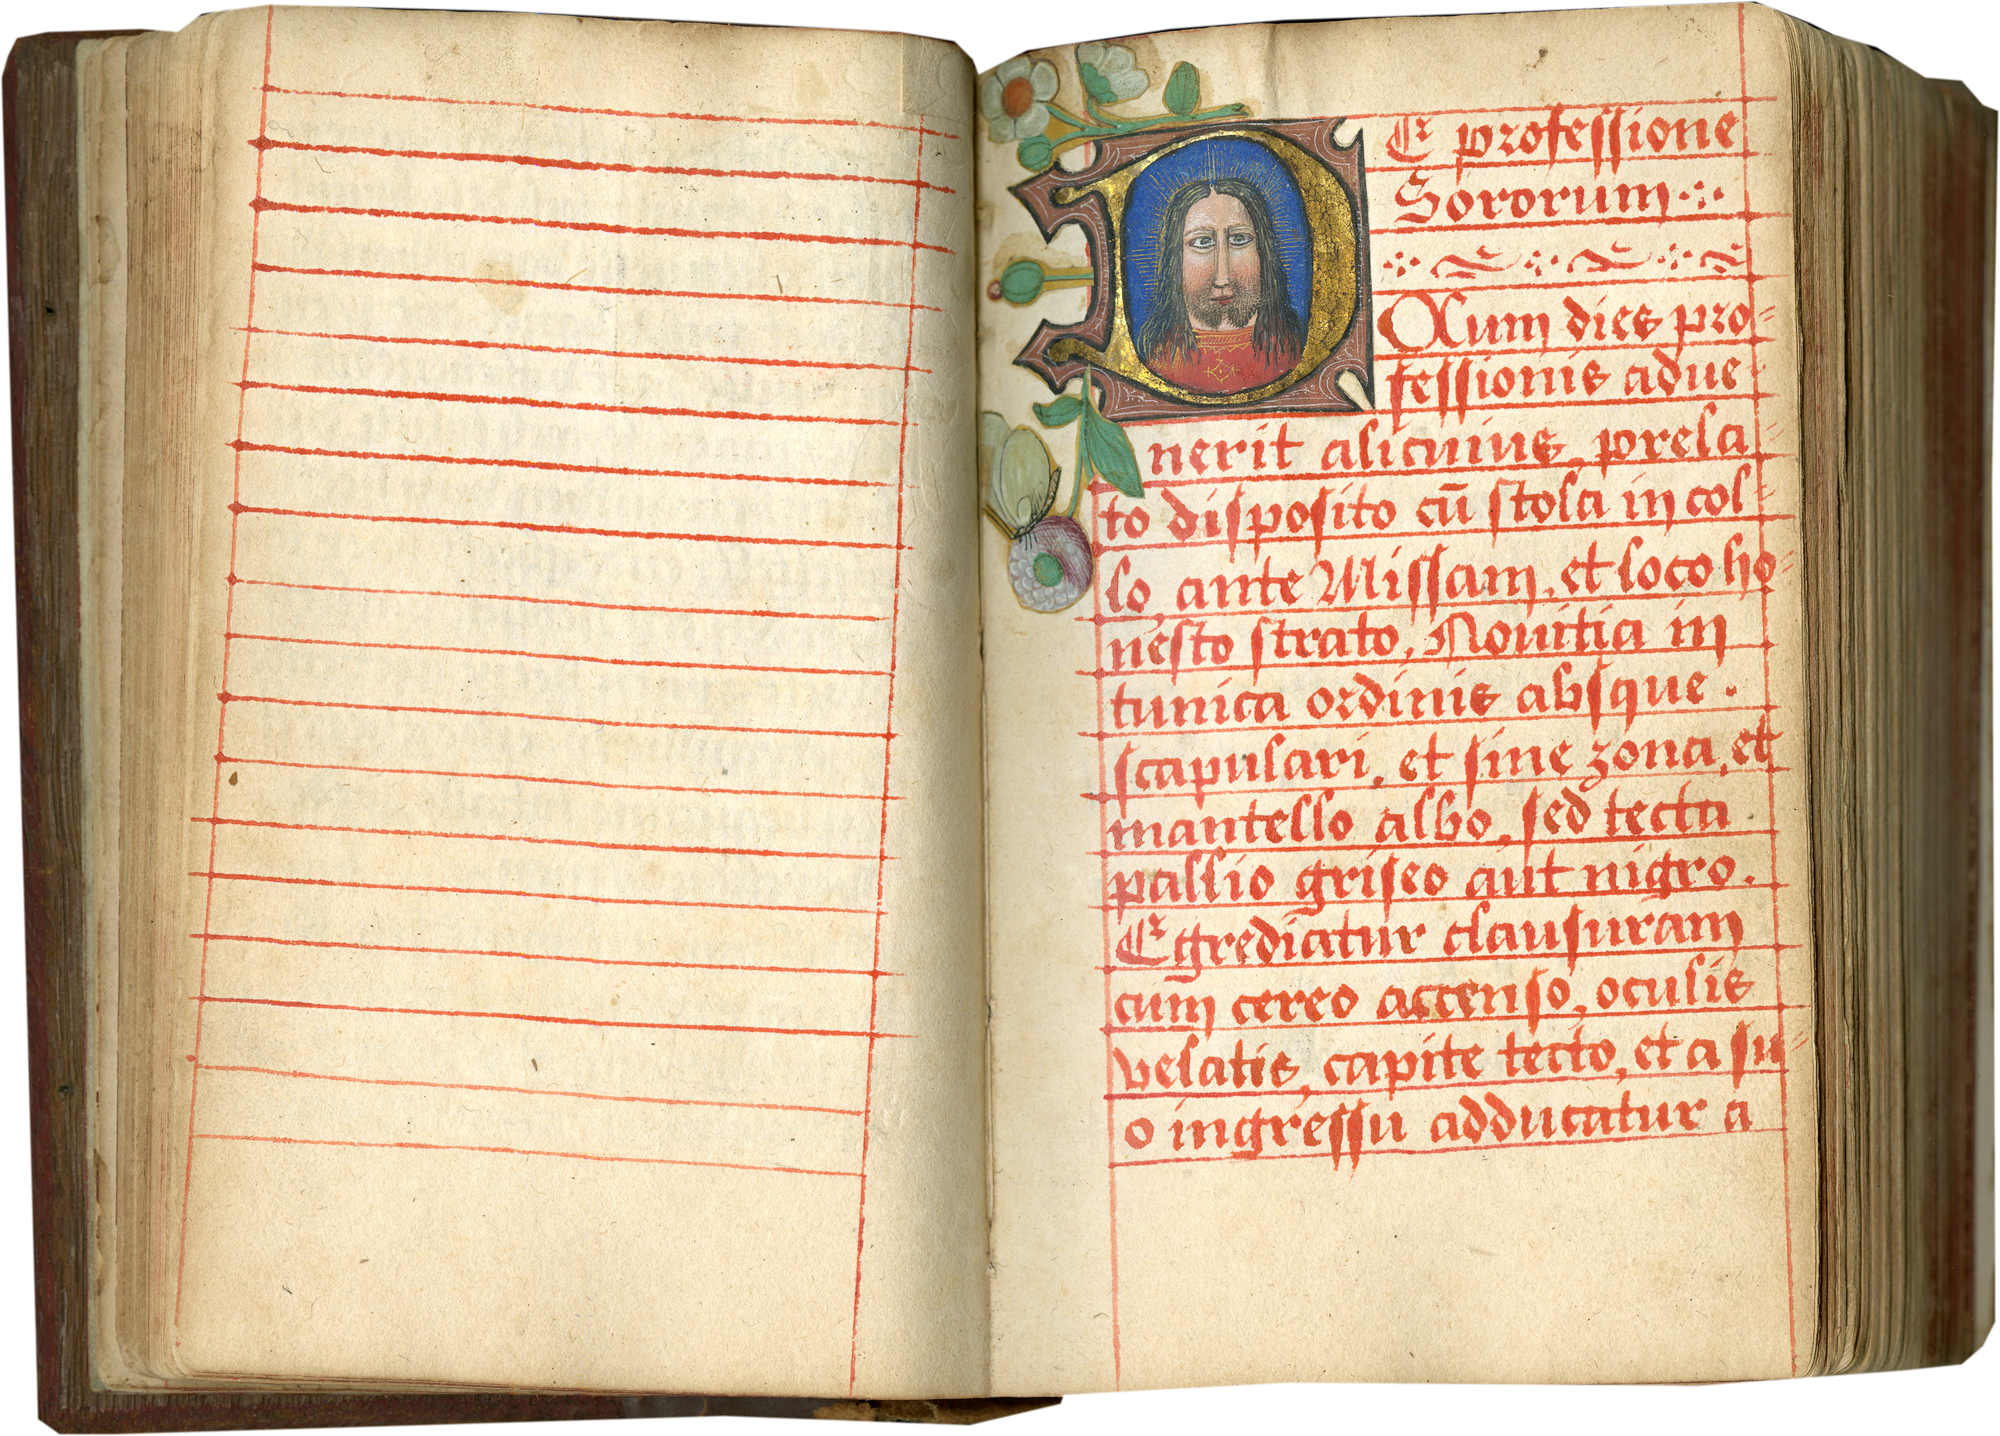 DE professione
Sororum
Cum dies pro=
fessionis adue=
nerit alicuius, prela=
to disposito cū stola in col=
lo, ante Missam, et loco ho=
nesto strato, Nouitia in
tunica ordinis absque.
scapulari, et sine zona, et
mantello albo, sed tecta
pallio griseo aut nigro.
Egrediatur clausuram
cum cereo accenso, oculis
velatis, capite tecto, et a su=
o ingressu adducatur a